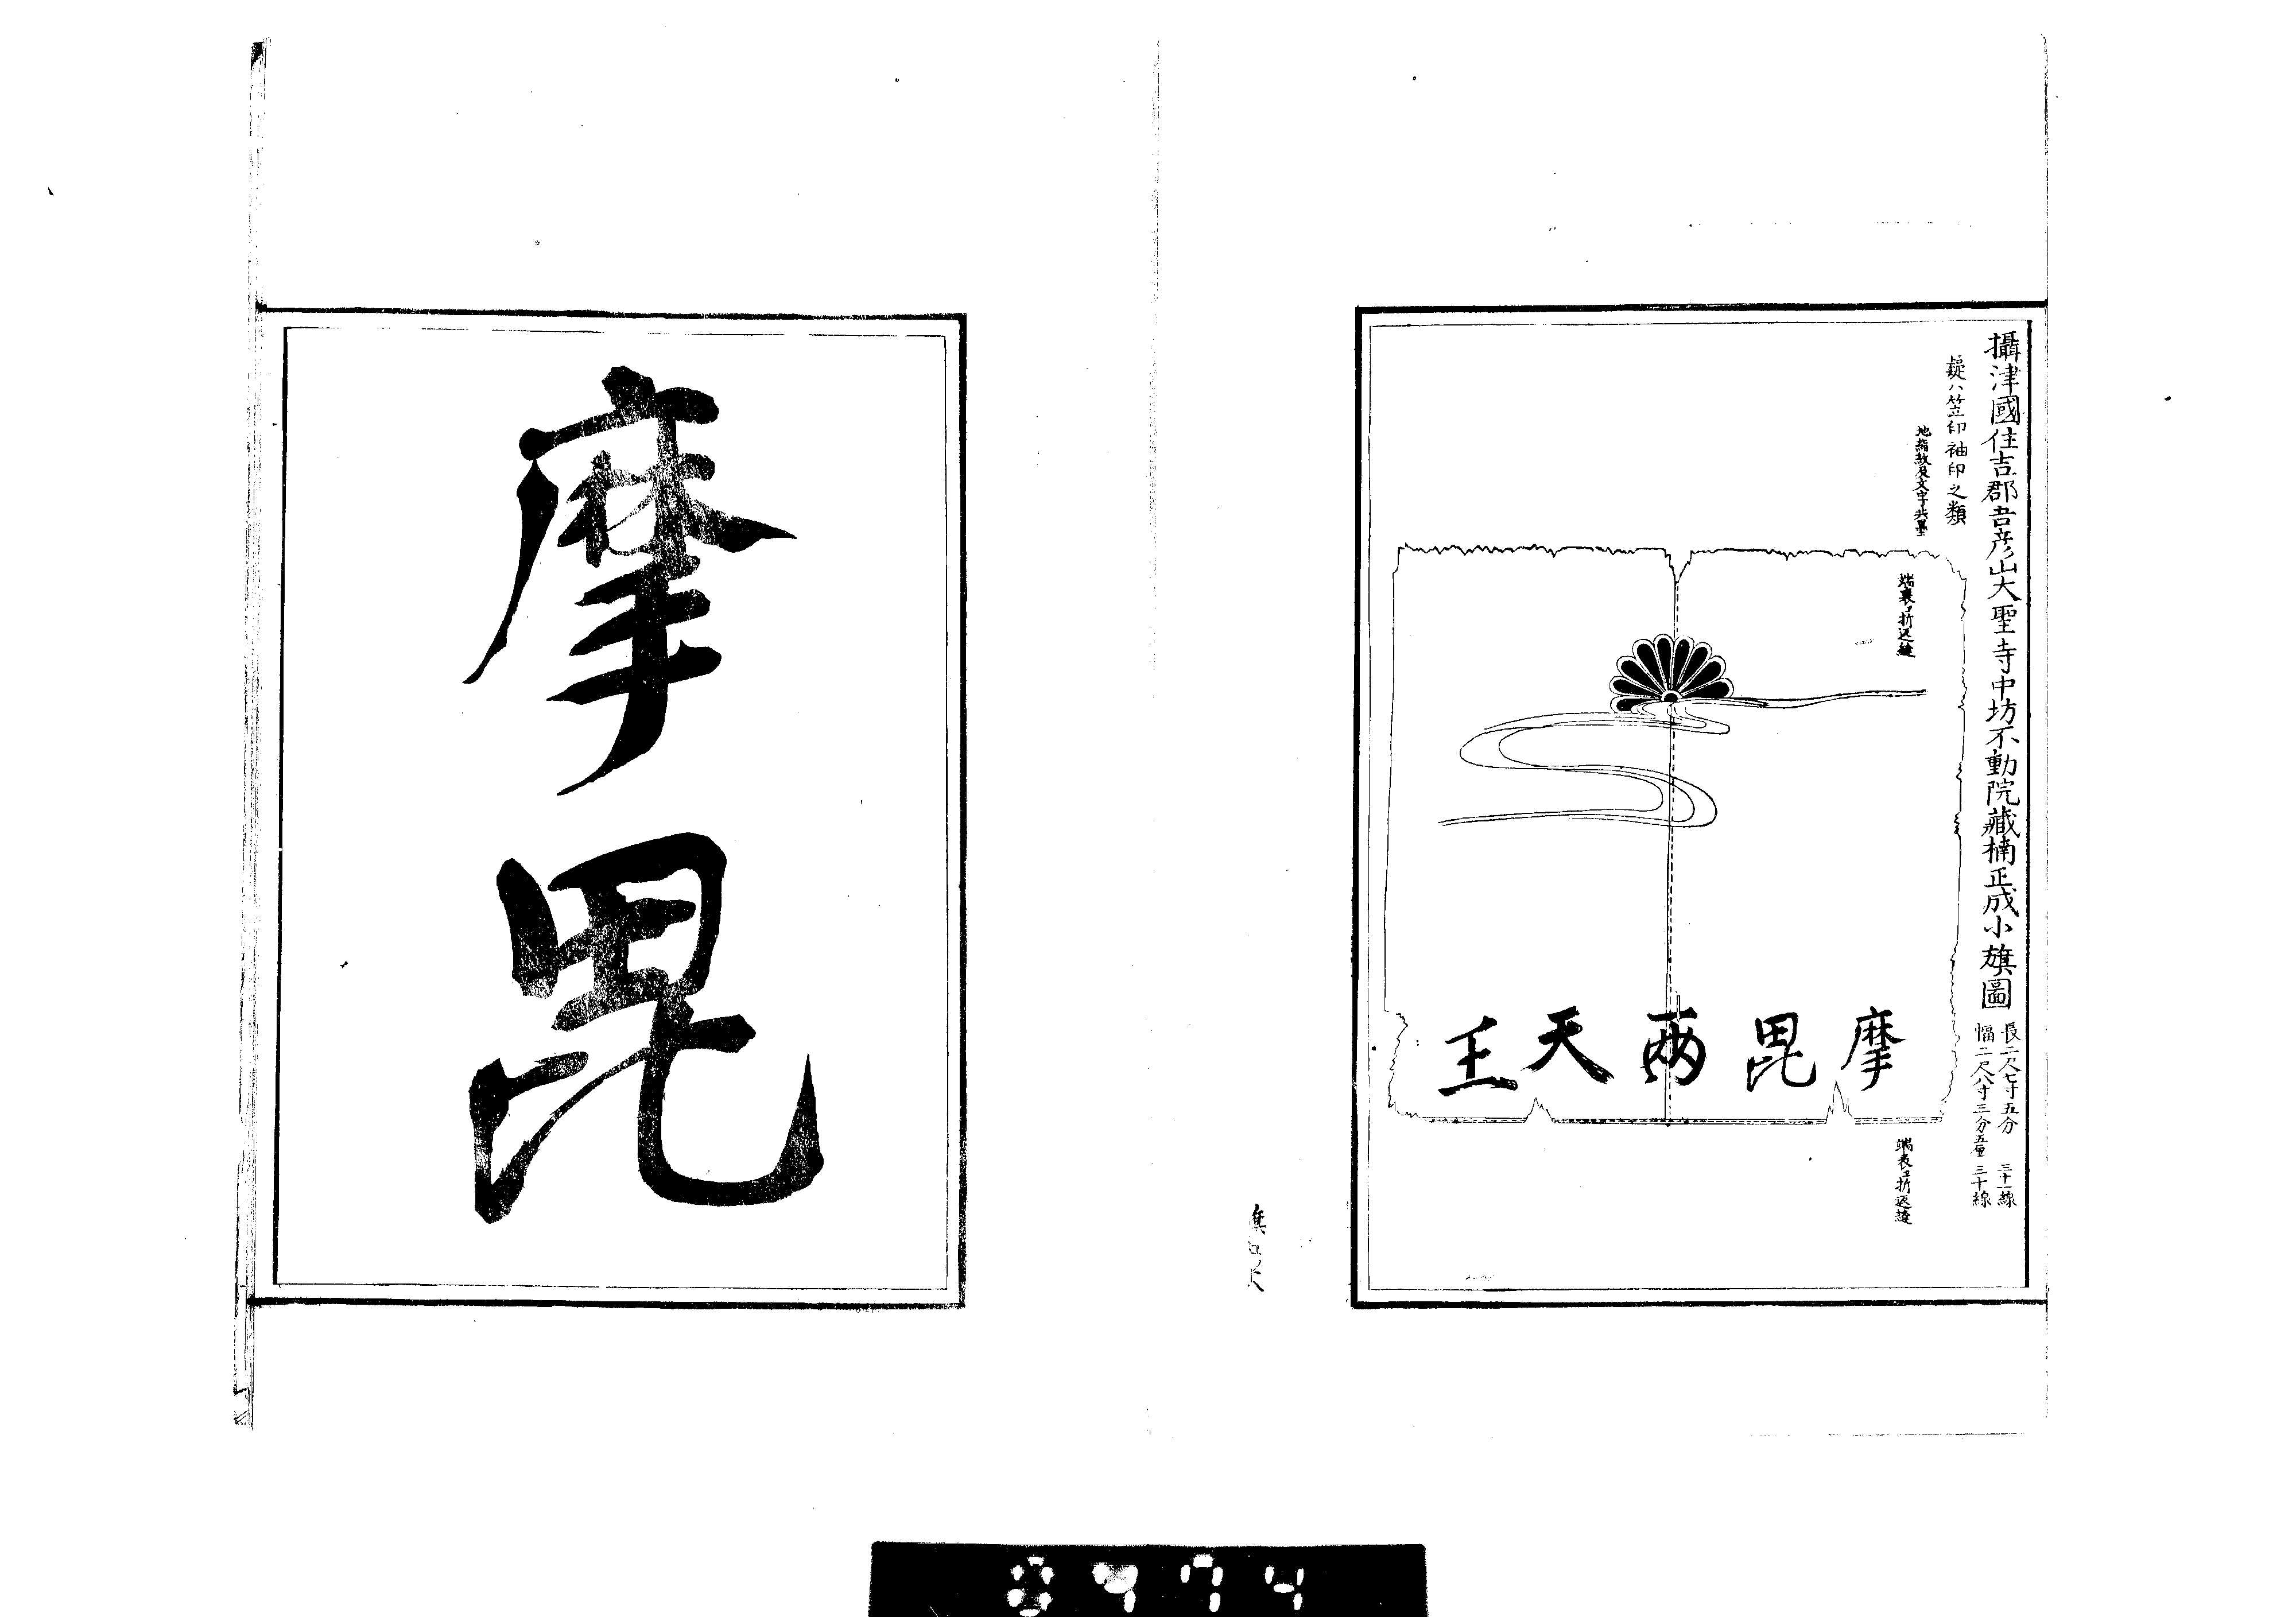 攝津國住吉郡吾彦山大聖寺中坊不動院藏楠正成小旗圖
長二尺七寸五分 三十一線
幅二尺八寸三分五厘 三十線
疑ハ笠印袖印之類
地絹紋及文字共墨
端裏ヱ折返縫
摩毘兩天王
端表ヱ折返縫
摩毘